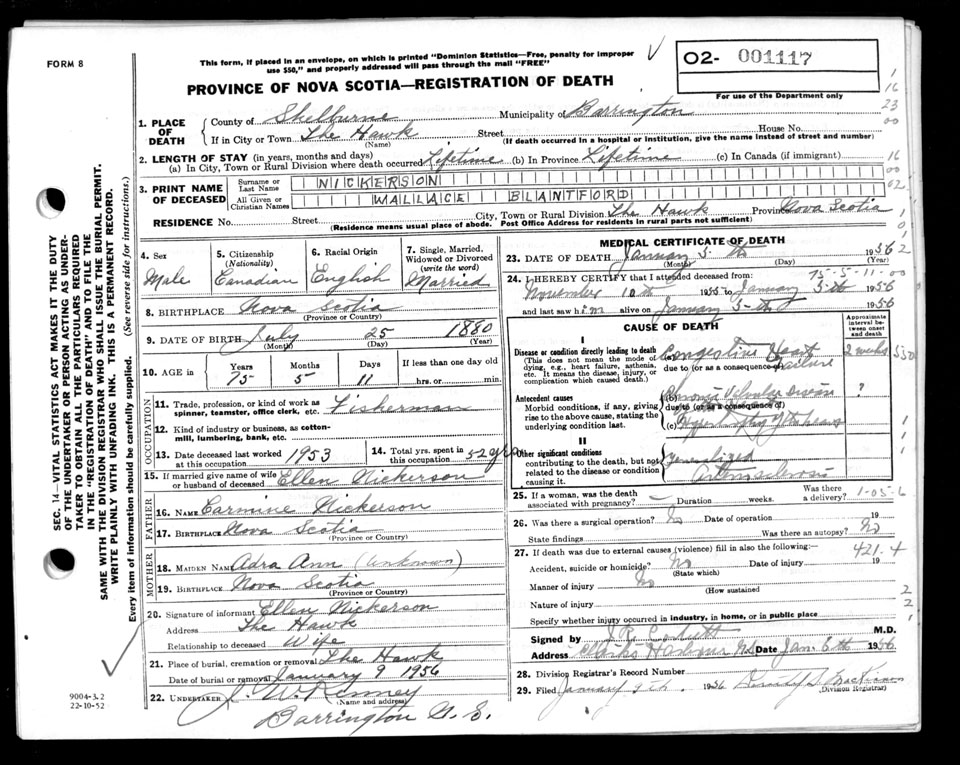 FORM 8
This form, if placed in an envelope, on which is printed "Dominion Statistics—Free, penalty for improper
use $50," and properly addressed will pass through the mail "FREE"
02- 001117
For use of the Department only
PROVINCE OF NOVA SCOTIA—REGISTRATION OF DEATH
1. PLACE OF DEATH
County of Shelburne Municipality of Barrington
If in City or Town The Hawk Street House No.
(Name) (If death occurred in a hospital or institution, give the name instead of street and number)
2. LENGTH OF STAY (in years, months and days)
(a) In City, Town or Rural Division where death occurred Lifetime (b) In Province Lifetime (c) In Canada (if immigrant)
3. PRINT NAME OF DECEASED
Surname or Last Name NICKERSON
All Given or Christian Names WALLACE BLANTFORD
RESIDENCE No. Street City, Town or Rural Division The Hawk Province Nova Scotia
(Residence means usual place of abode. Post Office Address for residents in rural parts not sufficient)
4. Sex Male
5. Citizenship (Nationality) Canadian
6. Racial Origin English
7. Single, Married, Widowed or Divorced (write the word) Married
8. BIRTHPLACE Nova Scotia
(Province or Country)
9. DATE OF BIRTH July 25 1880
(Month) (Day) (Year)
10. AGE in Years 75 Months 5 Days 11 If less than one day old hrs. or min.
OCCUPATION
11. Trade, profession, or kind of work as spinner, teamster, office clerk, etc. Fisherman
12. Kind of industry or business, as cotton-mill, lumbering, bank, etc.
13. Date deceased last worked at this occupation 1953
14. Total yrs. spent in this occupation 52 yrs
15. If married give name of wife or husband of deceased Ellen Nickerson
FATHER
16. Name Carmine Nickerson
17. Birthplace Nova Scotia
(Province or Country)
MOTHER
18. Maiden Name Adra Ann (Unknown)
19. Birthplace Nova Scotia
(Province or Country)
20. Signature of informant Ellen Nickerson
Address The Hawk
Relationship to deceased Wife
21. Place of burial, cremation or removal The Hawk
Date of burial or removal January 9 1956
22. Undertaker J. W. Kenney
(Name and address)
Barrington N. S.
MEDICAL CERTIFICATE OF DEATH
23. DATE OF DEATH January 5th 1956
(Month) (Day) (Year)
75-5-11-00
24. I HEREBY CERTIFY that I attended deceased from:
November 10th 1955 to January 5th 1956
and last saw him alive on January 5th 1956
CAUSE OF DEATH
Approximate interval between onset and death
I
Disease or condition directly leading to death
(This does not mean the mode of dying, e.g., heart failure, asthenia, etc. It means the disease, injury, or complication which caused death.)
(a) Congestive Heart Failure 2 weeks
due to (or as a consequence of)
Antecedent causes
Morbid conditions, if any, giving rise to the above cause, stating the underlying condition last.
(b) Chronic Valvular Disease ?
due to (or as a consequence of)
(c) Hypertrophy of the heart
II
Other significant conditions
contributing to the death, but not related to the disease or condition causing it.
Generalized
Arteriosclerosis
25. If a woman, was the death associated with pregnancy? — Duration weeks. Was there a delivery?
26. Was there a surgical operation? No Date of operation 19
State findings Was there an autopsy? No
27. If death was due to external causes (violence) fill in also the following: 421.4
Accident, suicide or homicide? No Date of injury 19
(State which)
Manner of injury No
(How sustained
Nature of injury
Specify whether injury occurred in industry, in home, or in public place
Signed by M.D.
Address Clarks Harbour NS Date Jan. 6th 1956
28. Division Registrar's Record Number
29. Filed January 1956
(Division Registrar)
SEC. 14—VITAL STATISTICS ACT MAKES IT THE DUTY
OF THE UNDERTAKER OR PERSON ACTING AS UNDER-
TAKER TO OBTAIN ALL THE PARTICULARS REQUIRED
IN THE "REGISTRATION OF DEATH" AND TO FILE THE
SAME WITH THE DIVISION REGISTRAR WHO SHALL ISSUE THE BURIAL PERMIT.
WRITE PLAINLY WITH UNFADING INK. THIS IS A PERMANENT RECORD.
Every item of information should be carefully supplied. (See reverse side for instructions.)
9004-3.2
22-10-52